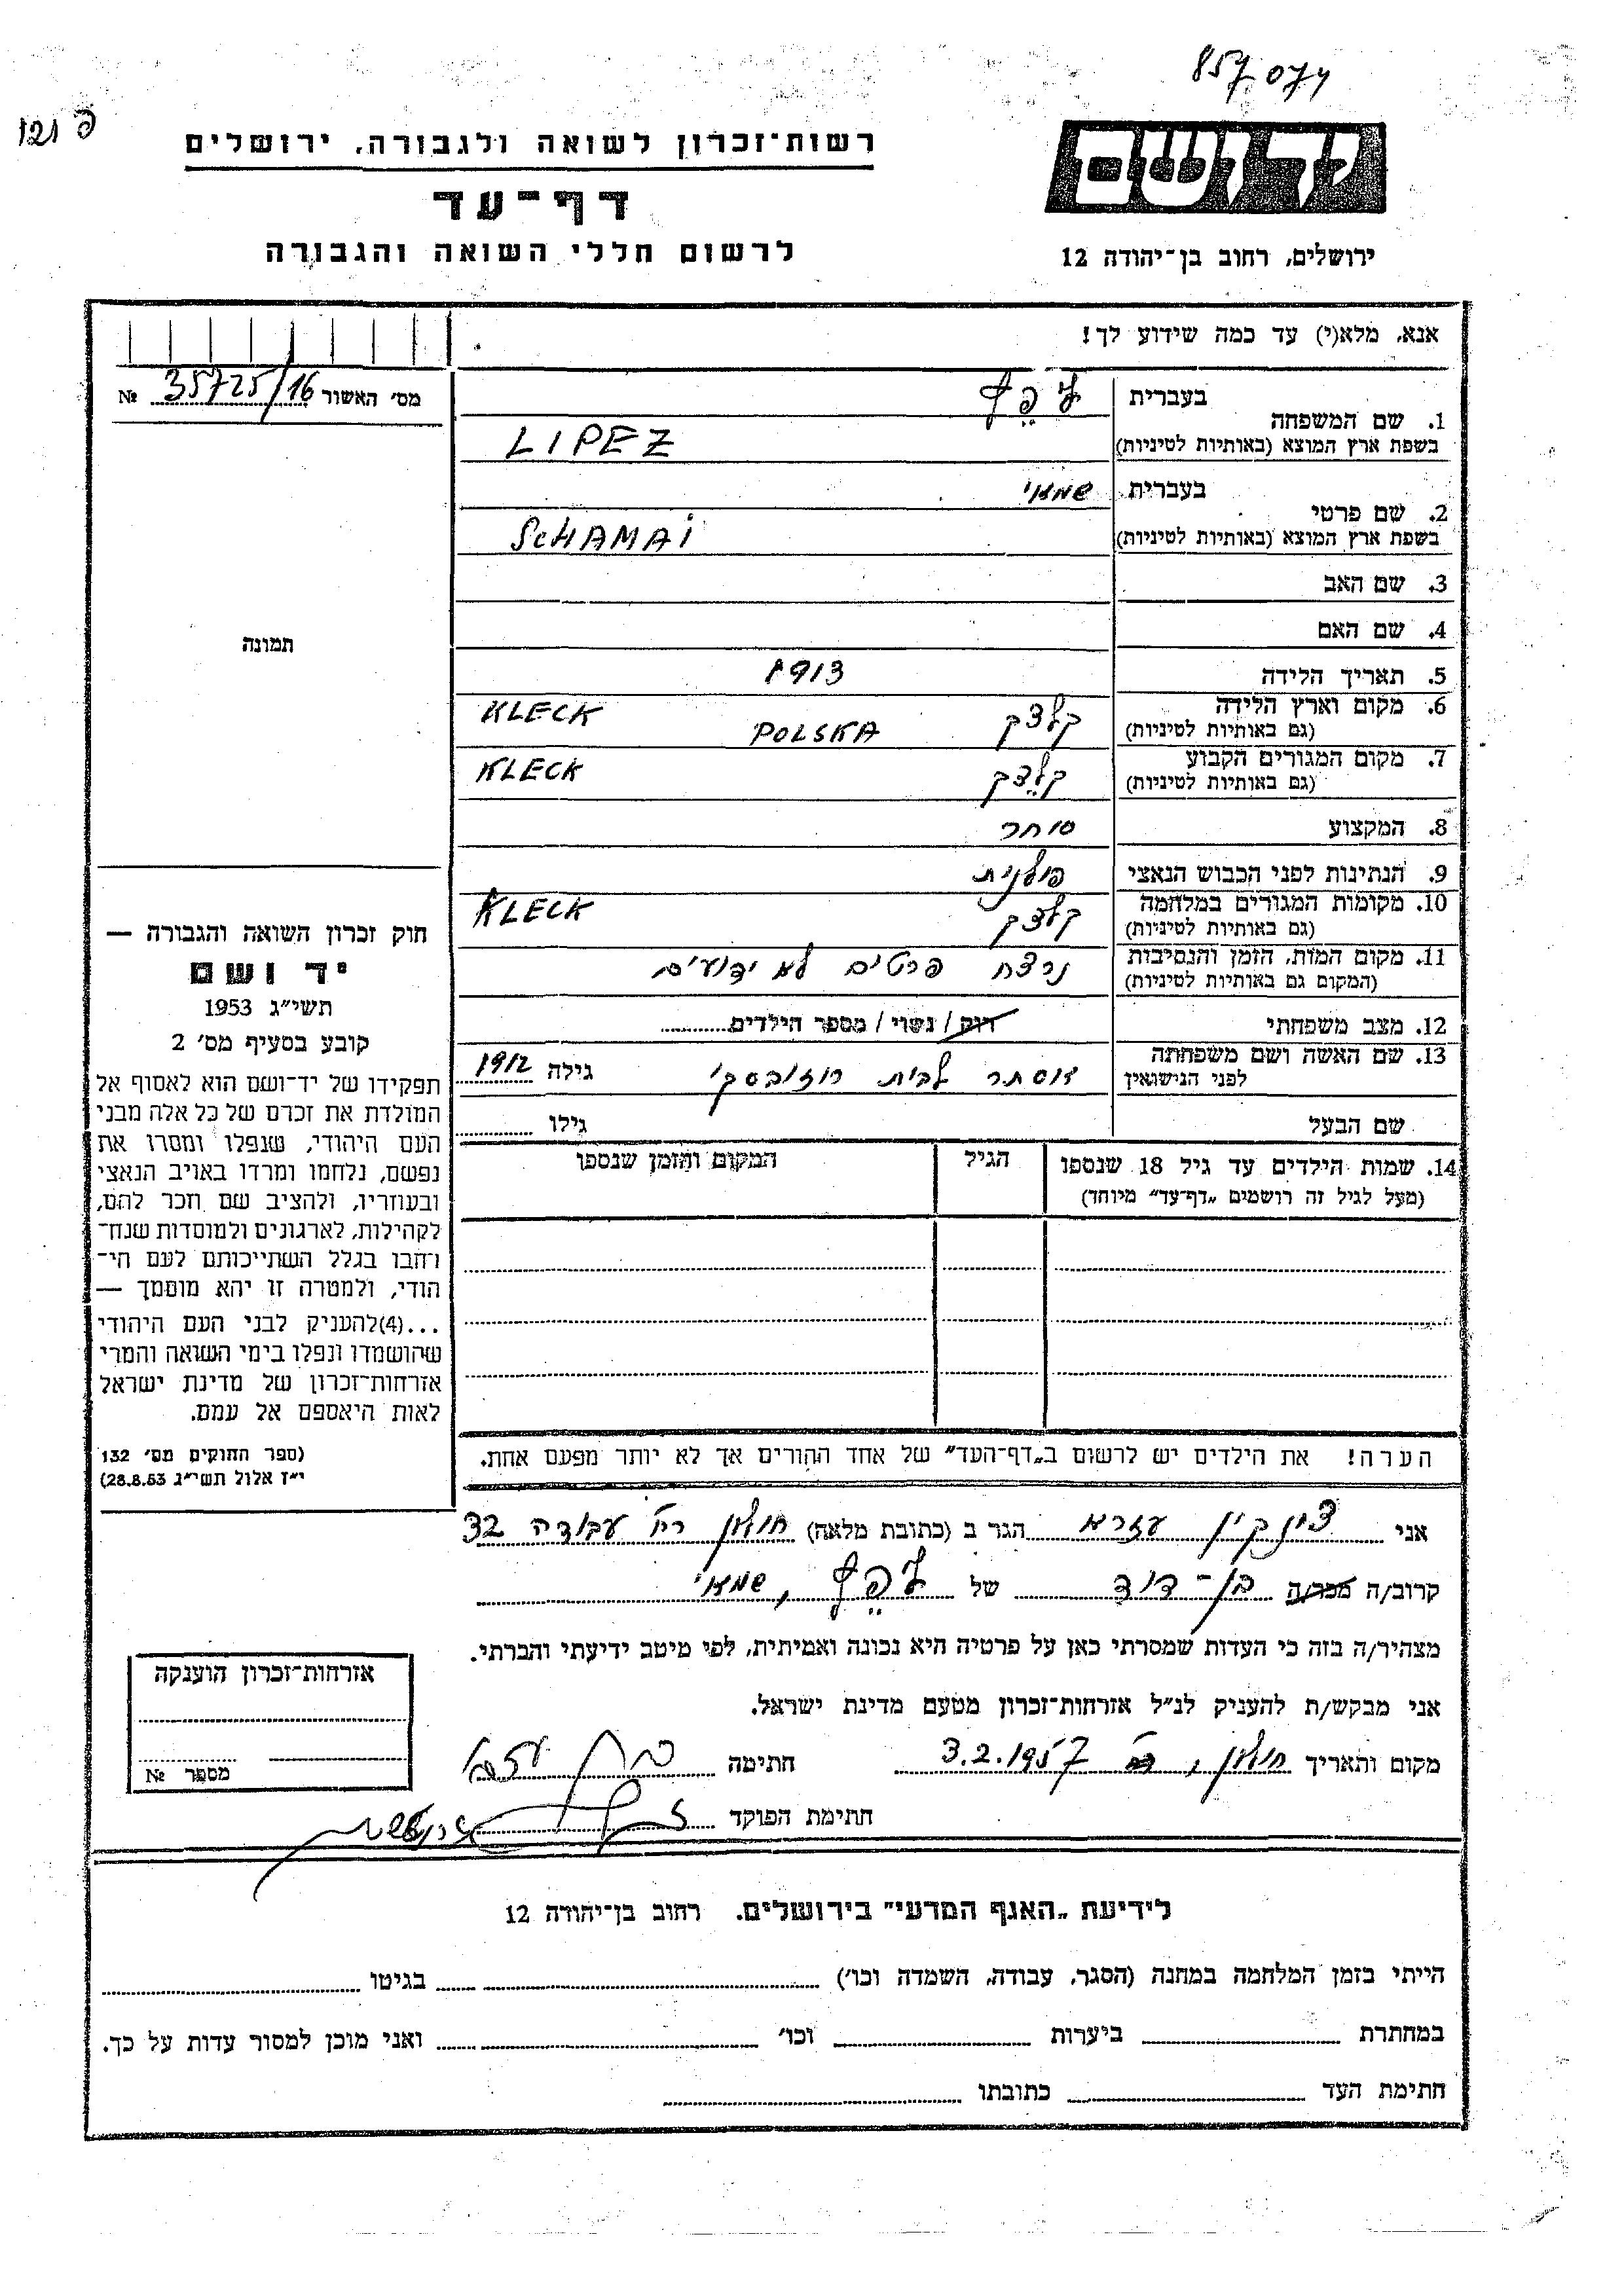 857074
פ 121
רשות־זכרון לשואה ולגבורה, ירושלים
דף־עד
לרשום חללי השואה והגבורה
יד ושם
ירושלים, רחוב בן־יהודה 12
אנא, מלא(י) עד כמה שידוע לך!
מס׳ האשור 35725/16 №
1. שם המשפחה בעברית
ליפץ
בשפת ארץ המוצא (באותיות לטיניות) LIPEZ
2. שם פרטי בעברית שמאי
בשפת ארץ המוצא (באותיות לטיניות) SCHAMAI
3. שם האב
4. שם האם
תמונה
5. תאריך הלידה 1913
6. מקום וארץ הלידה (גם באותיות לטיניות) קלצק POLSKA KLECK
7. מקום המגורים הקבוע (גם באותיות לטיניות) קלצק KLECK
8. המקצוע סוחר
9. הנתינות לפני הכבוש הנאצי פולנית
10. מקומות המגורים במלחמה (גם באותיות לטיניות) קלצק KLECK
11. מקום המות, הזמן והנסיבות (המקום גם באותיות לטיניות) נרצח פרטים לא ידועים
12. מצב משפחתי רוק / נשוי / מספר הילדים
13. שם האשה ושם משפחתה לפני הנישואין אסתר לבית רוזובסקי גילה 1912
שם הבעל גילו
14. שמות הילדים עד גיל 18 שנספו הגיל המקום והזמן שנספו
(מעל לגיל זה רושמים „דף־עד” מיוחד)
חוק זכרון השואה והגבורה —
יד ושם
תשי״ג 1953
קובע בסעיף מס׳ 2
תפקידו של יד־ושם הוא לאסוף אל
המולדת את זכרם של כל אלה מבני
העם היהודי, שנפלו ומסרו את
נפשם, נלחמו ומרדו באויב הנאצי
ובעוזריו, ולהציב שם וזכר להם,
לקהילות, לארגונים ולמוסדות שנח־
רהבו בגלל השתייכותם לעם הי־
הודי, ולמטרה זו יהא מוסמך —
...(4)להעניק לבני העם היהודי
שהושמדו ונפלו בימי השואה והמרי
אזרחות־זכרון של מדינת ישראל
לאות היאספם אל עמם.
(ספר החוקים מס׳ 132
י״ז אלול תשי״ג 28.8.53)
הערה! את הילדים יש לרשום ב„דף־העד” של אחד ההורים אך לא יותר מפעם אחת.
אני עזרא הגר ב (כתובת מלאה) חולון רח׳ עבודה 32
קרוב/ה מכר/ה בן־דוד של ליפץ, שמאי
מצהיר/ה בזה כי העדות שמסרתי כאן על פרטיה היא נכונה ואמיתית, לפי מיטב ידיעתי והכרתי.
אני מבקש/ת להעניק לנ״ל אזרחות־זכרון מטעם מדינת ישראל.
מקום ותאריך חולון, 3.2.1957 חתימה
חתימת הפוקד
אזרחות־זכרון הוענקה
מספר №
לידיעת „האגף המדעי” בירושלים. רחוב בן־יהודה 12
הייתי בזמן המלחמה במחנה (הסגר, עבודה, השמדה וכו׳) בגיטו
במחתרת ביערות וכו׳ ואני מוכן למסור עדות על כך.
חתימת העד כתובתו